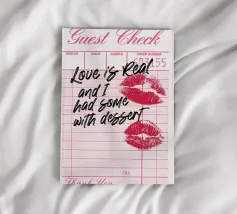 Guest Check
Love is Real
and I
had some
with dessert
TAX
Thank You